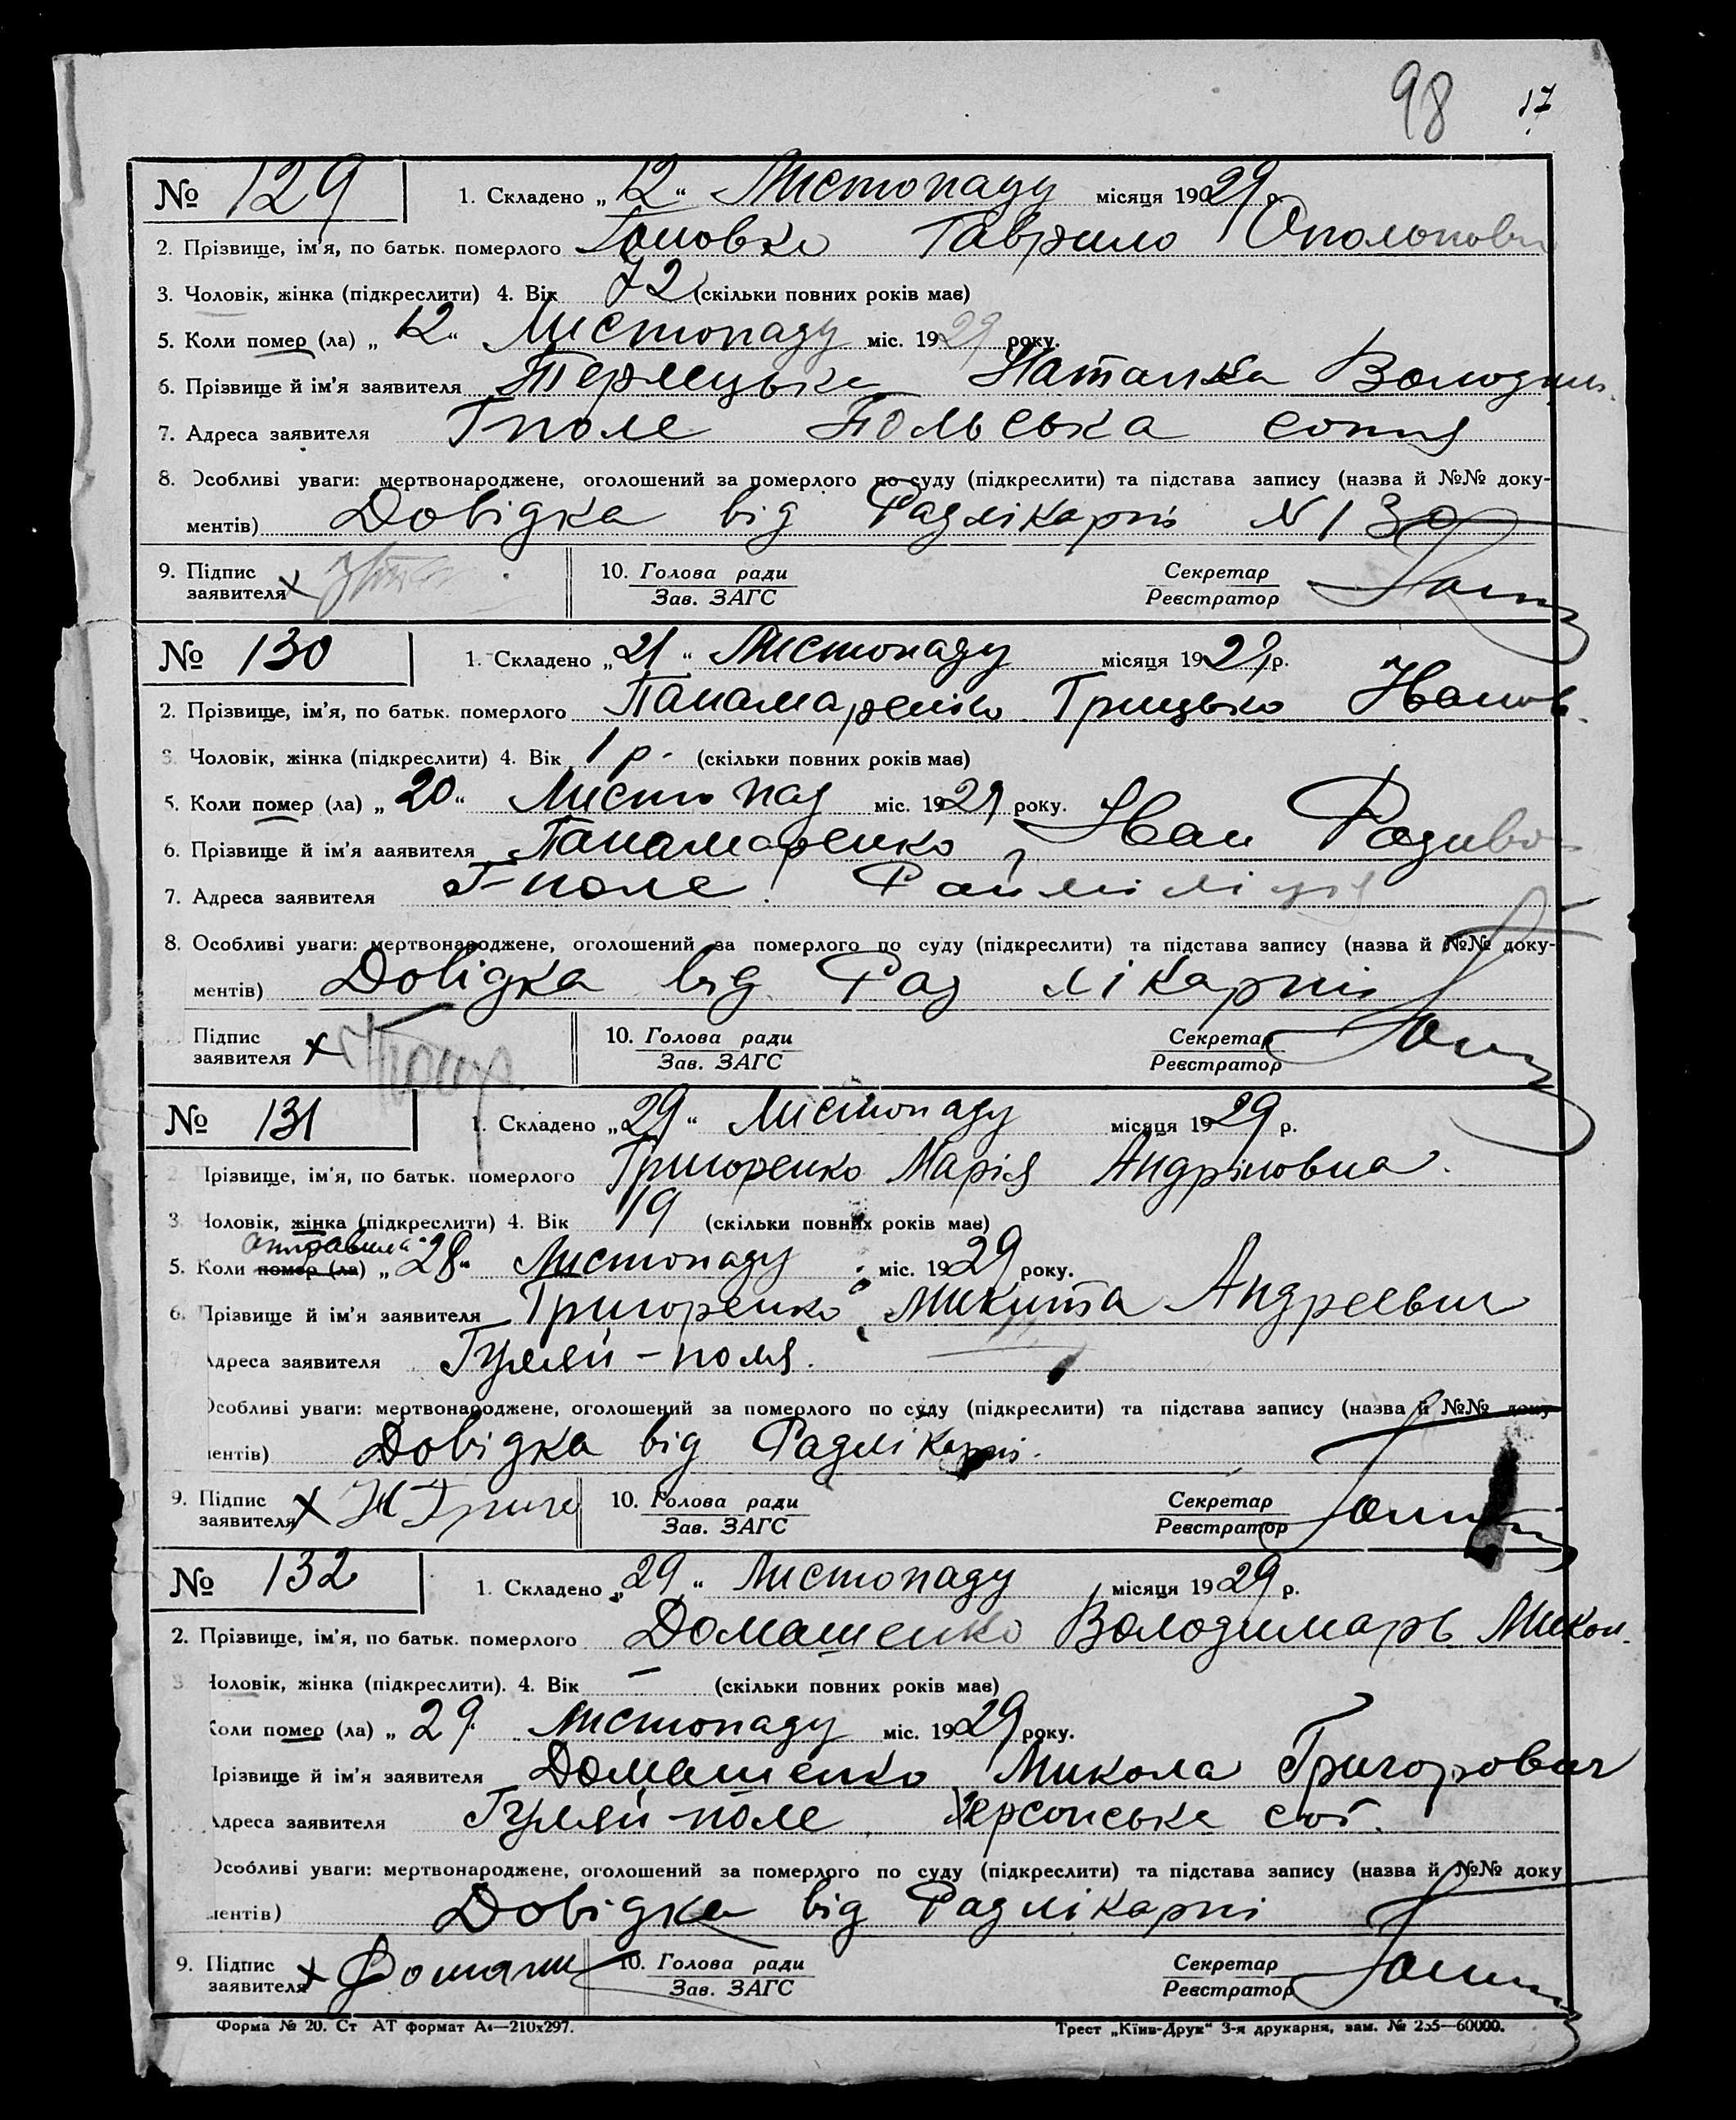 98 17
№ 129 1. Складено „12" Листопаду місяця 1929 р.
2. Прізвище, ім'я, по батьк. померлого Гаврило
3. Чоловік, жінка (підкреслити) 4. Вік 72 (скільки повних років має)
5. Коли помер (ла) „12" Листопаду міс. 1929 року.
6. Прізвище й ім'я заявителя Терлецька Наталка
7. Адреса заявителя Гполе Польська сотня
8. Особливі уваги: мертвонароджене, оголошений за померлого по суду (підкреслити) та підстава запису (назва й №№ доку-
ментів) Довідка від Радлікарні N 130
9. Підпис 10. Голова ради Секретар
заявителя х Зав. ЗАГС Реєстратор
№ 130 1. Складено „21" Листопаду місяця 1929 р.
2. Прізвище, ім'я, по батьк. померлого Панамаренко Грицько Іванов.
3. Чоловік, жінка (підкреслити) 4. Вік 1 р. (скільки повних років має)
5. Коли помер (ла) „20" Листопад міс. 1929 року.
6. Прізвище й ім'я заявителя Панамаренко Іван
7. Адреса заявителя Г-поле Райміліція
8. Особливі уваги: мертвонароджене, оголошений за померлого по суду (підкреслити) та підстава запису (назва й №№ доку-
ментів) Довідка від Рад лікарні
Підпис 10. Голова ради Секретар
заявителя х Зав. ЗАГС Реєстратор
№ 131 1. Складено „29" Листопаду місяця 1929 р.
2. Прізвище, ім'я, по батьк. померлого Григоренко Марія Андріновна.
3. Чоловік, жінка (підкреслити) 4. Вік 19 (скільки повних років має)
5. Коли помер (ла) „28" Листопаду міс. 1929 року.
6. Прізвище й ім'я заявителя Григоренко Микита Андреевич
Адреса заявителя Гуляй-поля.
Особливі уваги: мертвонароджене, оголошений за померлого по суду (підкреслити) та підстава запису (назва й №№ доку-
ментів) Довідка від Радлікарні.
9. Підпис 10. Голова ради Секретар
заявителя х Зав. ЗАГС Реєстратор
№ 132 1. Складено „29" Листопаду місяця 1929 р.
2. Прізвище, ім'я, по батьк. померлого Домашенко Володимаръ Микол.
3. Чоловік, жінка (підкреслити). 4. Вік — (скільки повних років має)
Коли помер (ла) „29" Листопаду міс. 1929 року.
Прізвище й ім'я заявителя Домашенко Микола Григорович
Адреса заявителя Гуляй-поле Херсонська сот.
Особливі уваги: мертвонароджене, оголошений за померлого по суду (підкреслити) та підстава запису (назва й №№ доку
ментів) Довідка від Радлікарні
9. Підпис 10. Голова ради Секретар
заявителя х Домаш Зав. ЗАГС Реєстратор
Форма № 20. Ст АТ формат А4—210х297. Трест „Київ-Друк" 3-я друкарня, зам. № 255—60000.